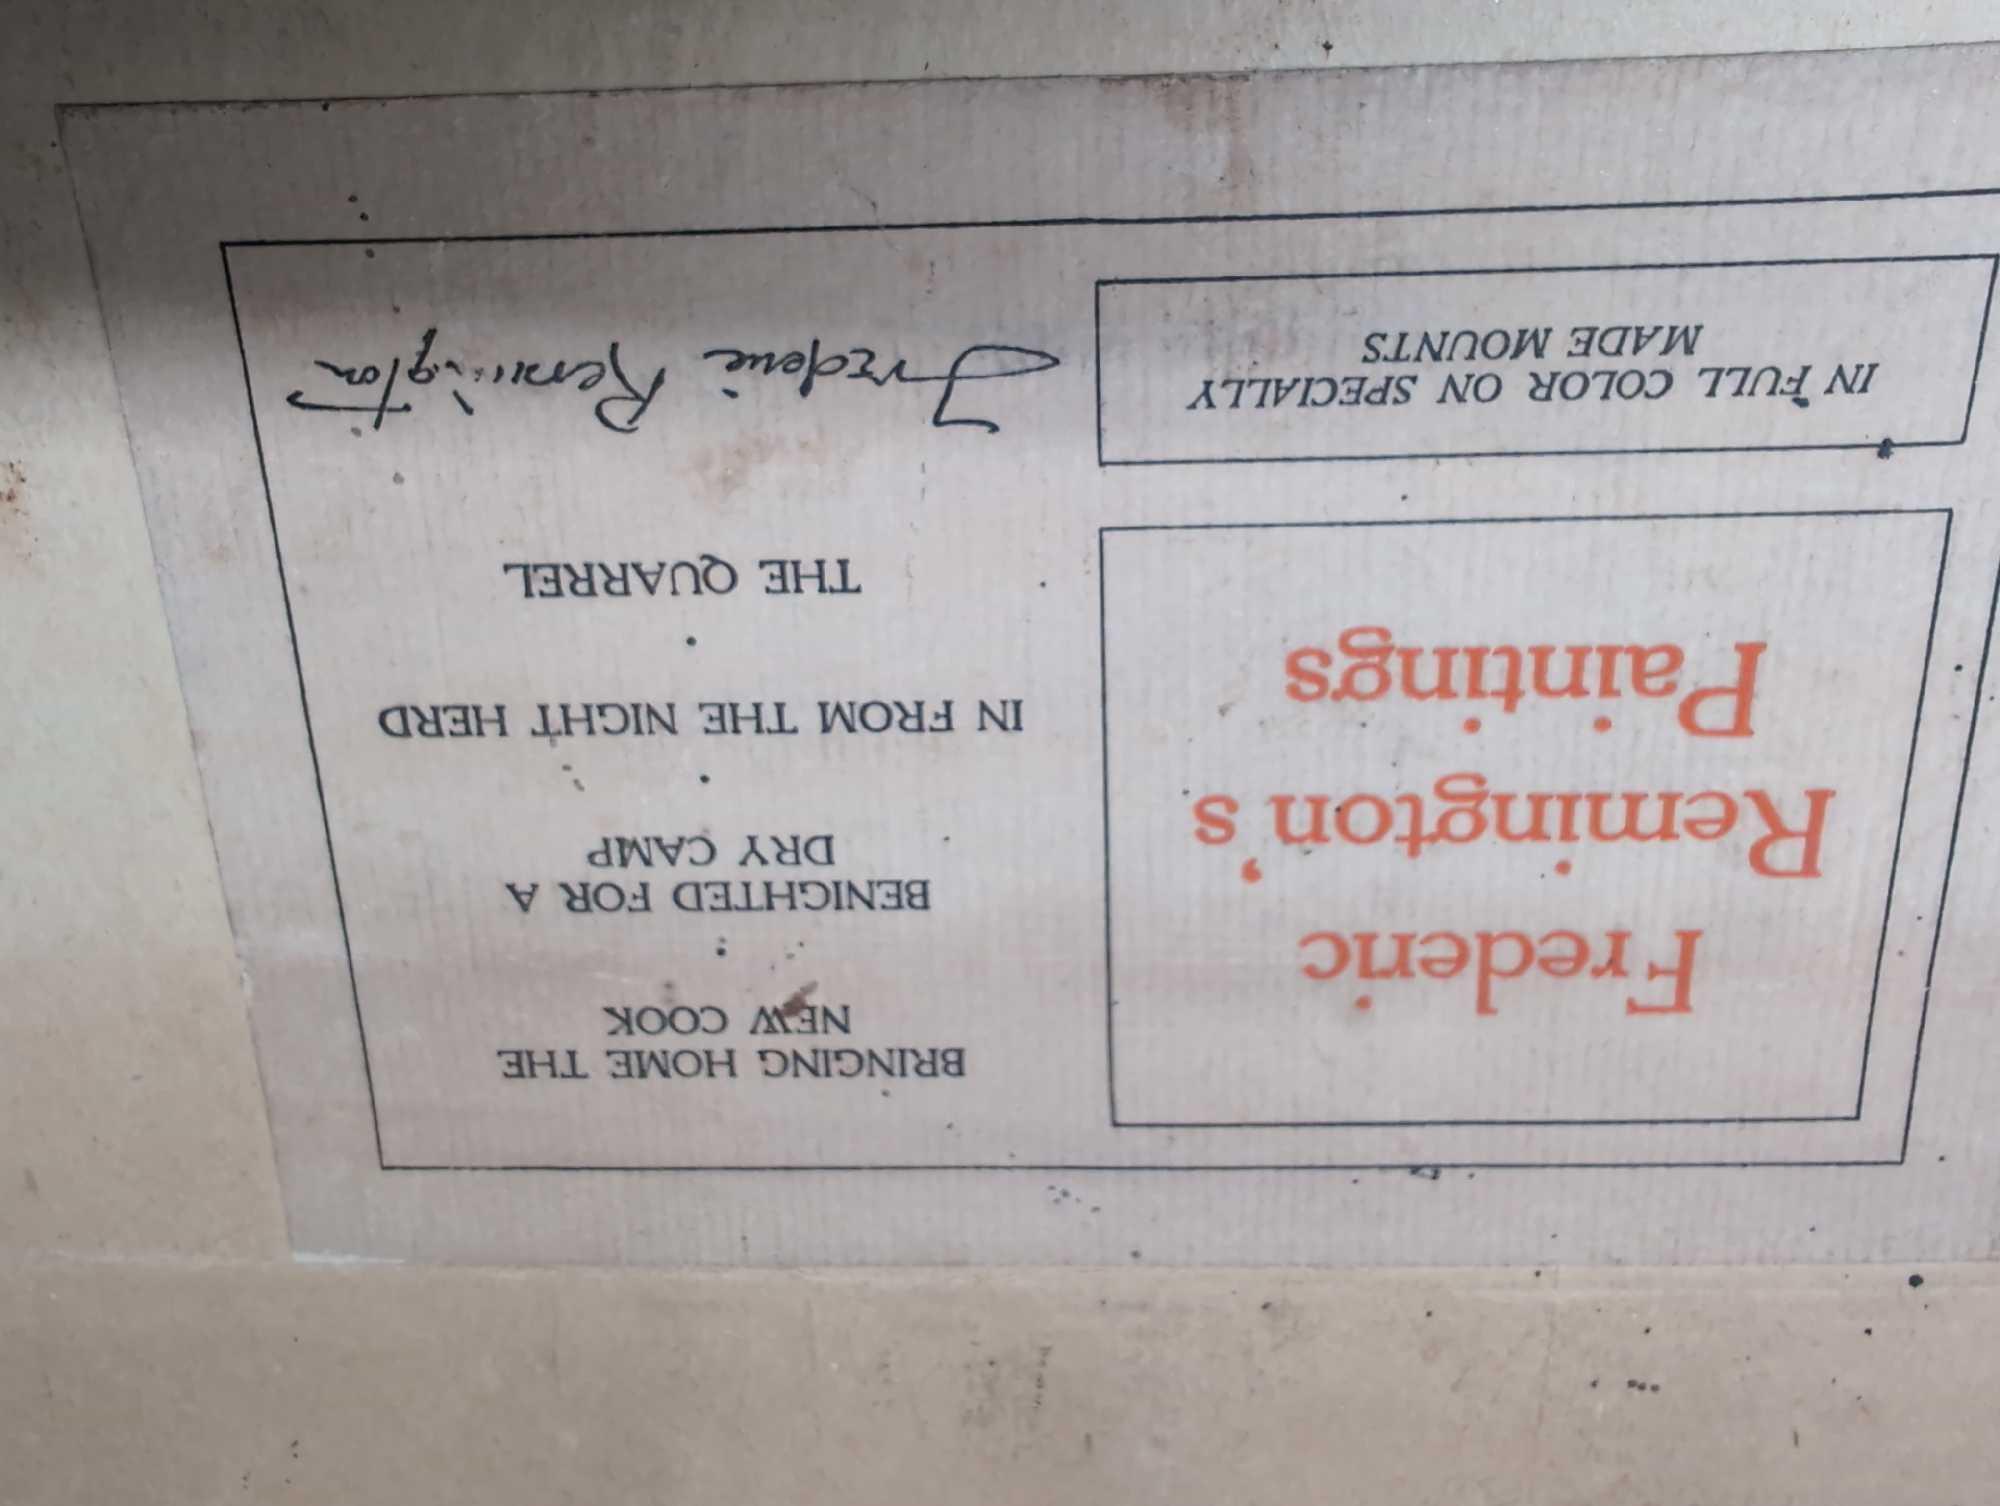 Frederic
Remington's
Paintings
IN FULL COLOR ON SPECIALLY
MADE MOUNTS
BRINGING HOME THE
NEW COOK
BENIGHTED FOR A
DRY CAMP
IN FROM THE NIGHT HERD
THE QUARREL
Frederic Remington